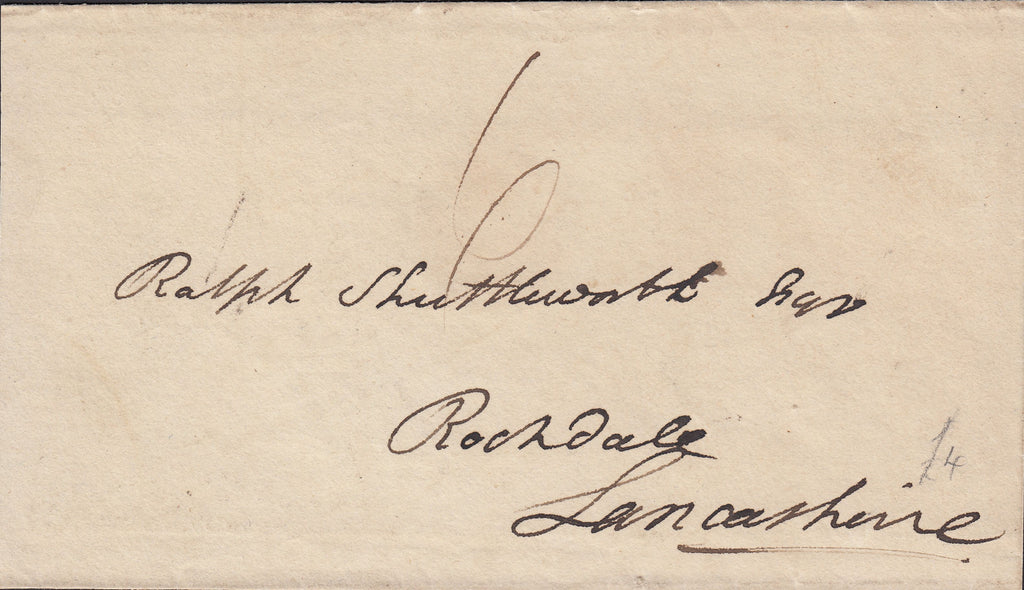 6
Ralph Shuttleworth Esqr
Rochdale
Lancashire
£4